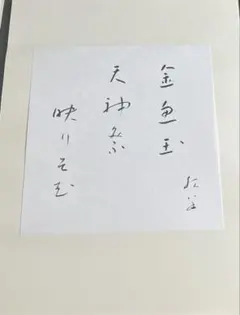 金魚玉
天神祭
映りそむ